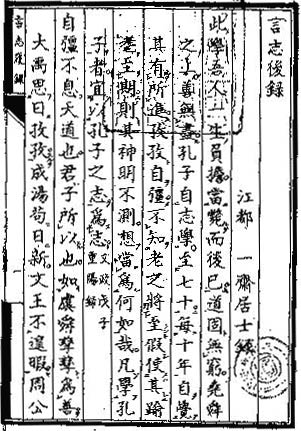 言志後録
江都 一齋居士録
此學吾人一生負擔當斃而後已道固無窮堯舜
之上善無盡孔子自志學至七十每十年自覺
其有所進孜孜自彊不知老之將至假使其踰
耄至期則其神明不測想當爲何如哉凡學孔
子者宜以孔子之志爲志文政戊子重陽録
自彊不息天道也君子所以也如虞舜孳孳爲善
大禹思日孜孜成湯苟日新文王不遑暇周公
言志後録 一